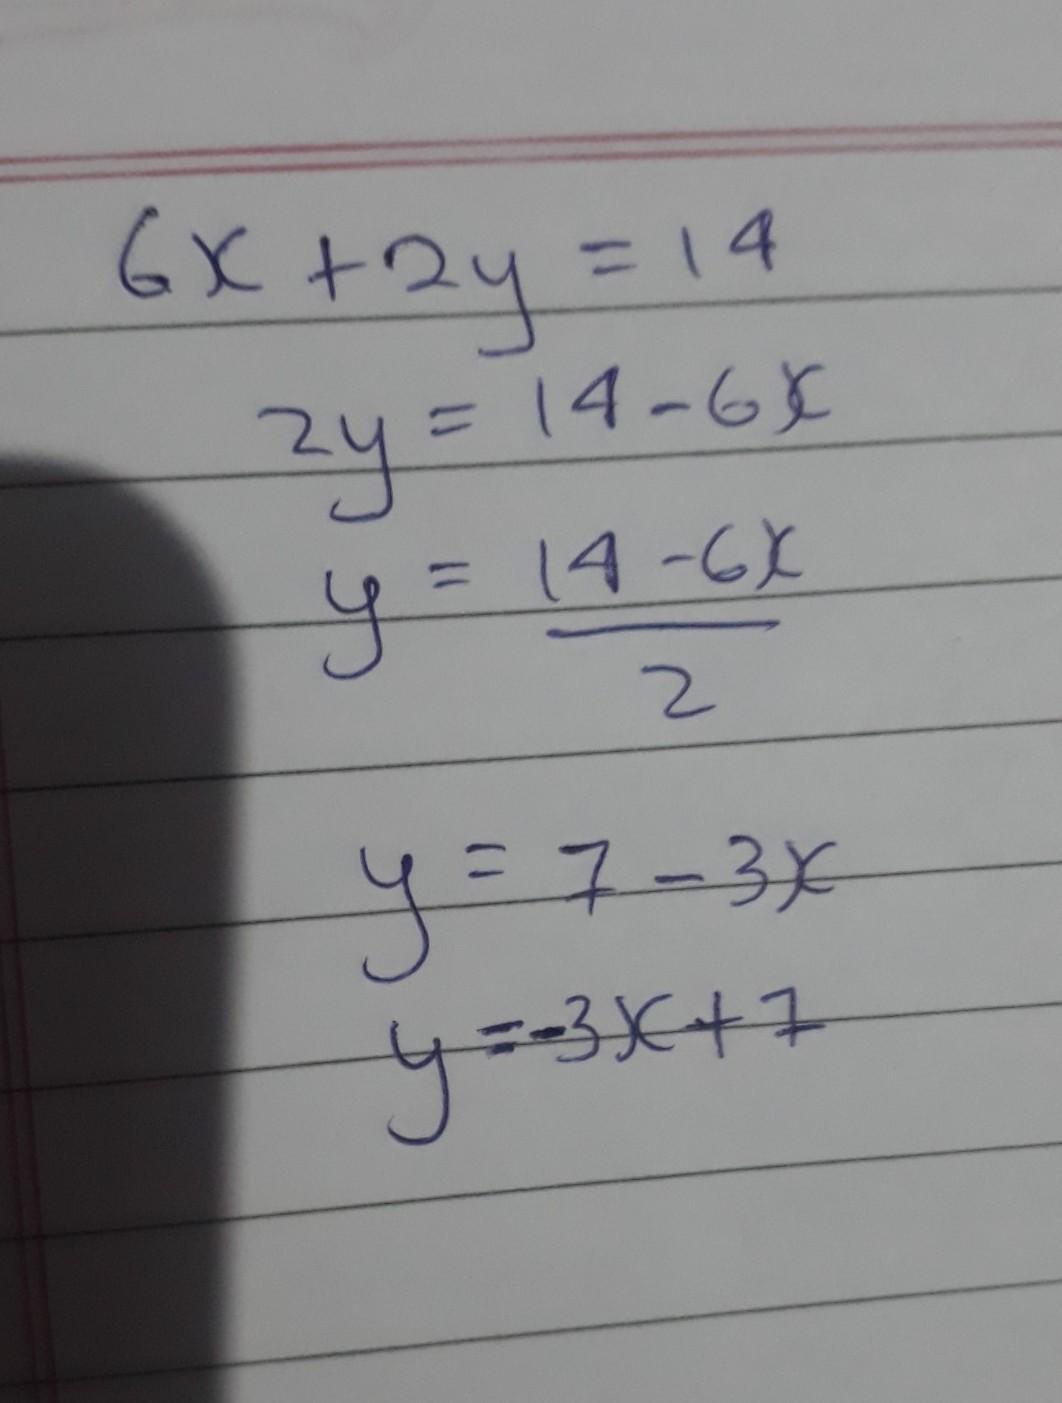 6x + 2y = 14
2y = 14 - 6x
y = 14 - 6x
2
y = 7 - 3x
y = -3x + 7